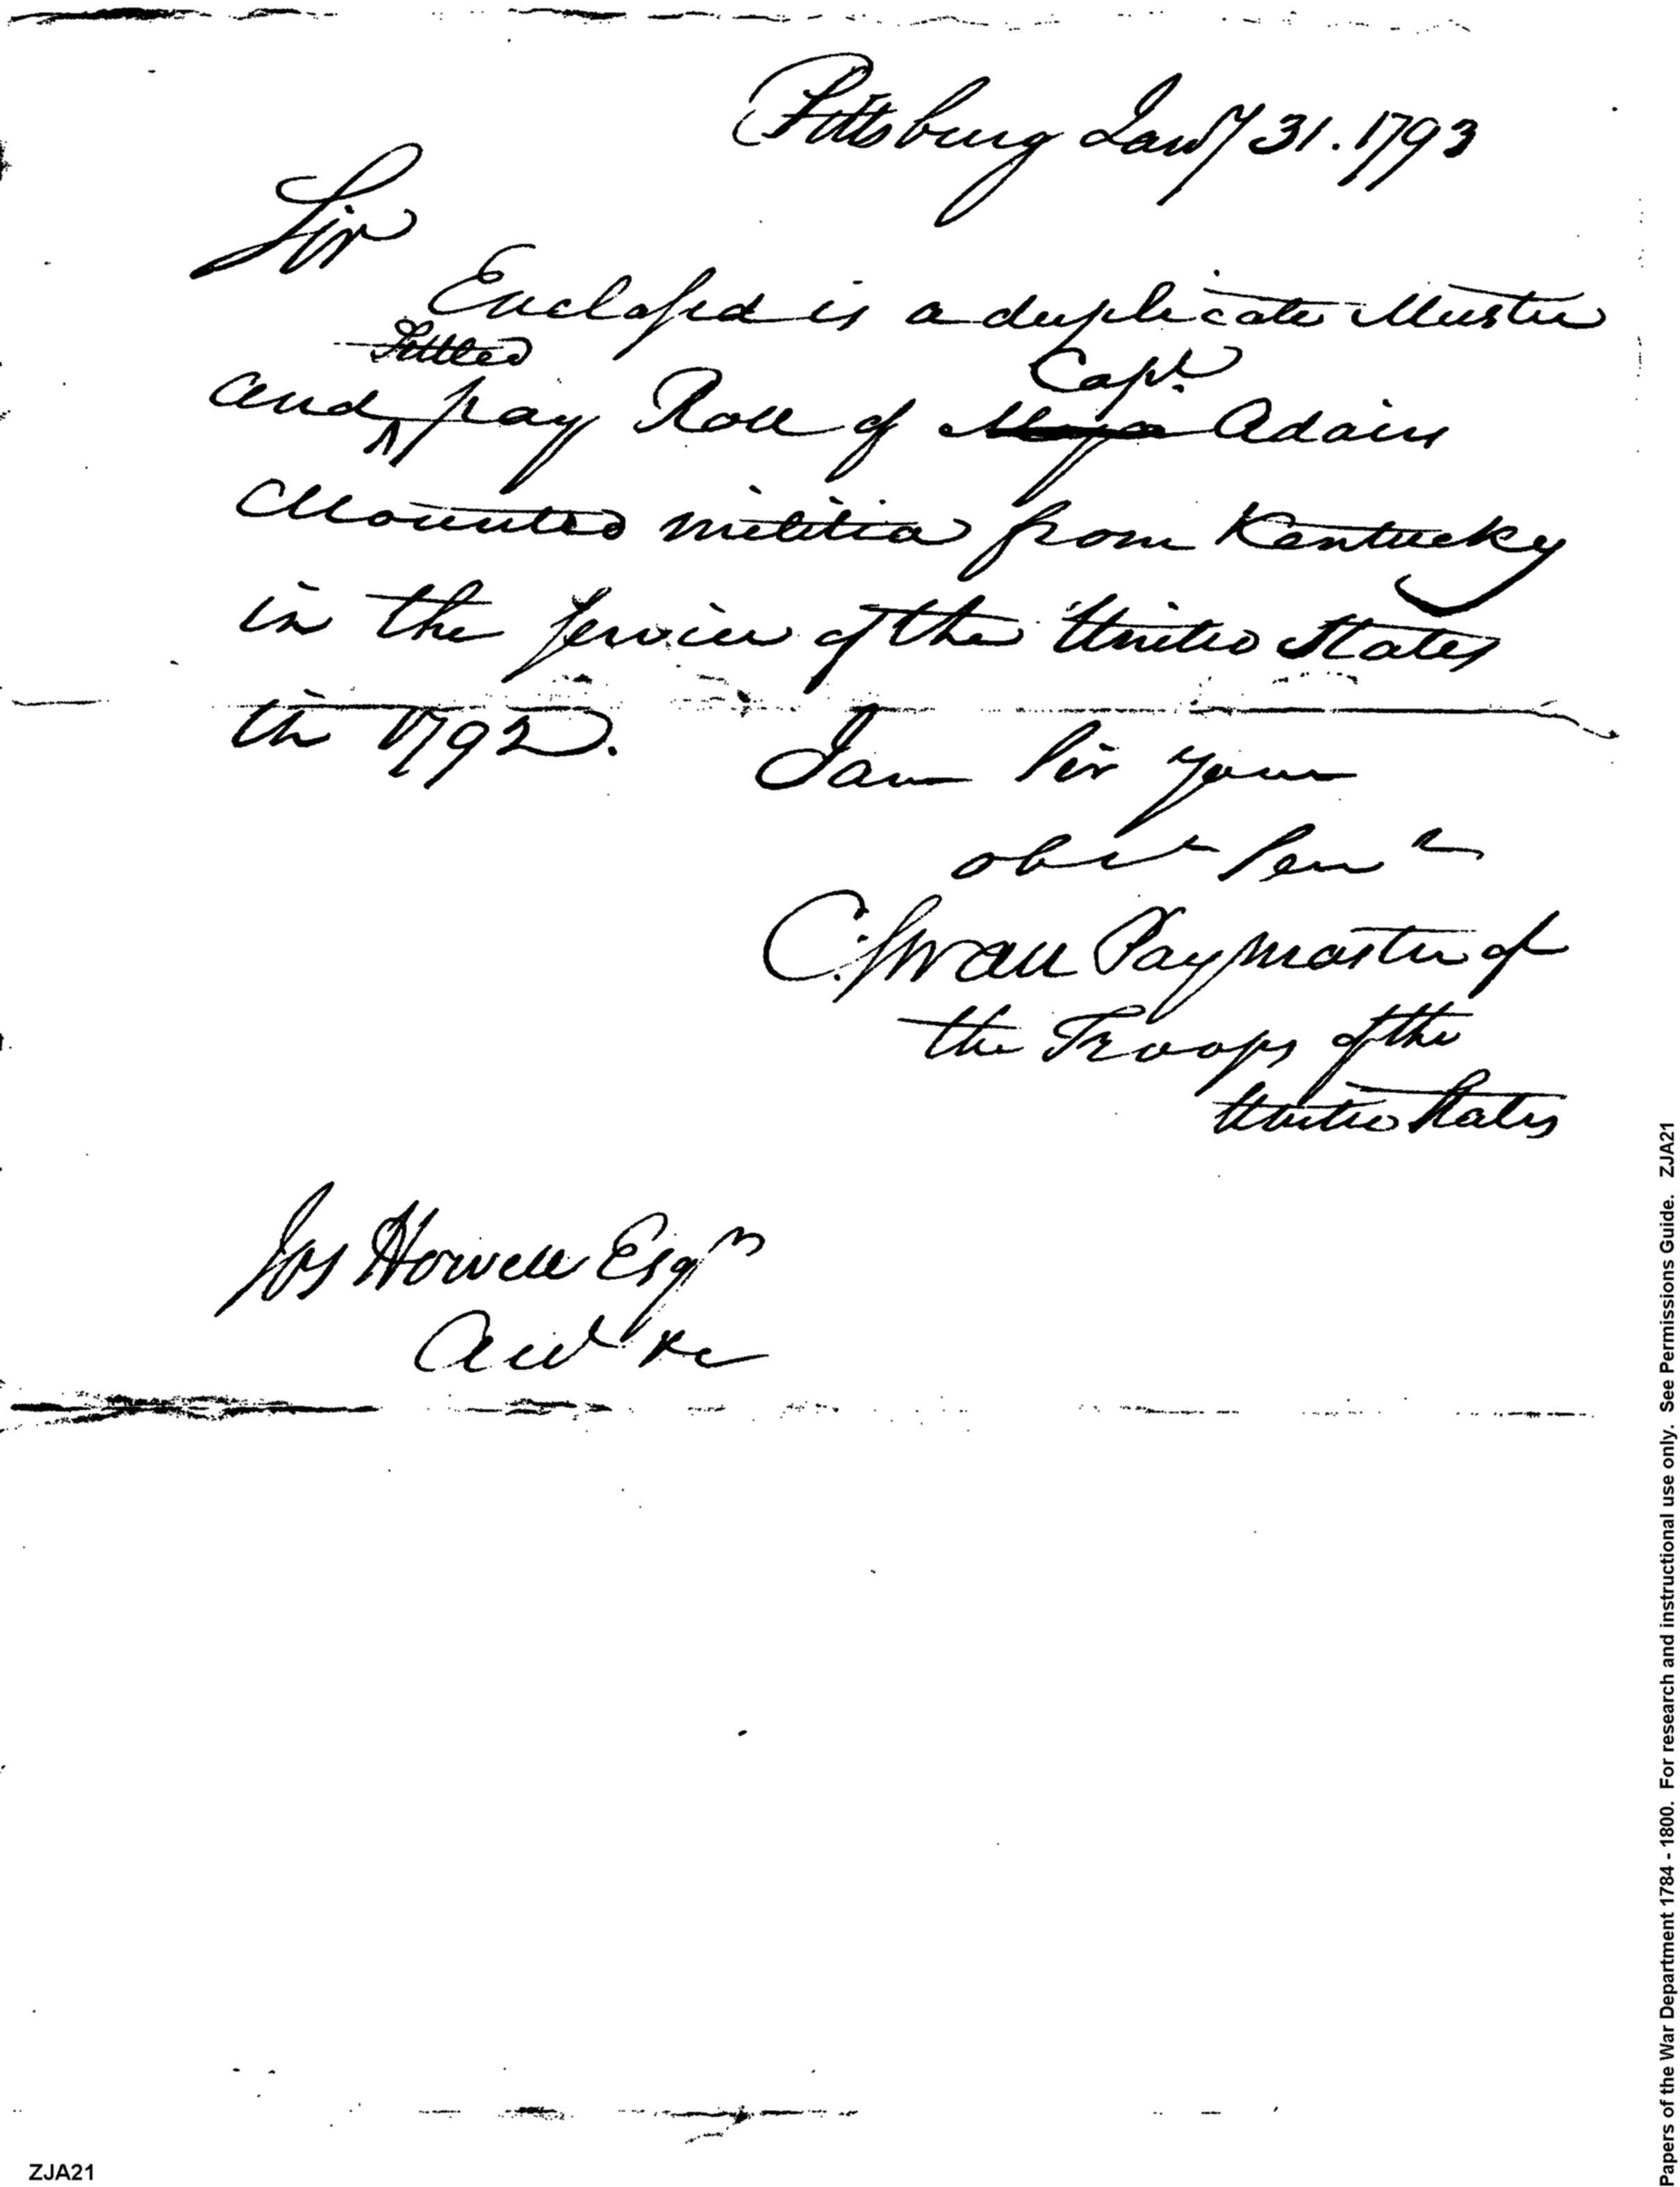 Pittsburg Jany 31. 1793
Sir
Enclosed is a duplicate Muster
Settled
and pay Roll of Major Adairs
Capt.
Mounted militia from Kentucky
in the Service of the United States
in 1792.
I am Sir your
obdt Servt
C. Swan Paymaster of
the Troops of the
United States
Jos Howell Esqr
Acct &c
Papers of the War Department 1784 - 1800. For research and instructional use only. See Permissions Guide. ZJA21
ZJA21